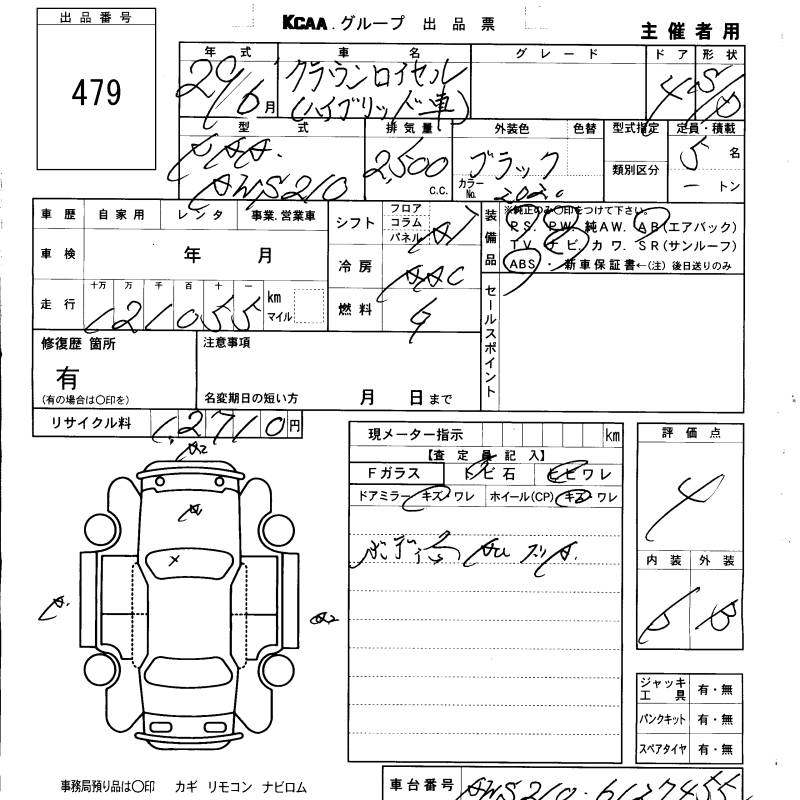 出品番号
479
KCAA.グループ 出品票
主催者用
年式 車名 グレード ドア 形状
29/6月 クラウンロイヤル 4 S/D
(ハイブリッド車)
型式 排気量 外装色 色替 型式指定 定員・積載
DAA. 2,500 ブラック 類別区分 5名
AWS210 c.c. カラーNo. 202. ートン
車歴 自家用 レンタ 事業.営業車
車検 年 月
走行 十万 万 千 百 十 一
121055 km マイル
シフト フロア コラム パネル A
冷房 AAC
燃料
装備品
※純正のみ○印をつけて下さい。
P S. P W. 純A W. A B(エアバック)
T V. ナ ビ. カ ワ. S R(サンルーフ)
ABS・新車保証書←(注) 後日送りのみ
修復歴 箇所
有
(有の場合は○印を)
注意事項
名変期日の短い方 月 日まで
セールスポイント
リサイクル料 12710円
現メーター指示 km
【査定員記入】
Fガラス トビ石 ヒビワレ
ドアミラー キズ・ワレ ホイール(CP) キズ・ワレ
ボディ
評価点
4
内装 外装
B B
A2
A
×
A.
A2
ジャッキ工具 有・無
パンクキット 有・無
スペアタイヤ 有・無
事務局預り品は○印 カギ リモコン ナビロム
車台番号 AWS210-6127455